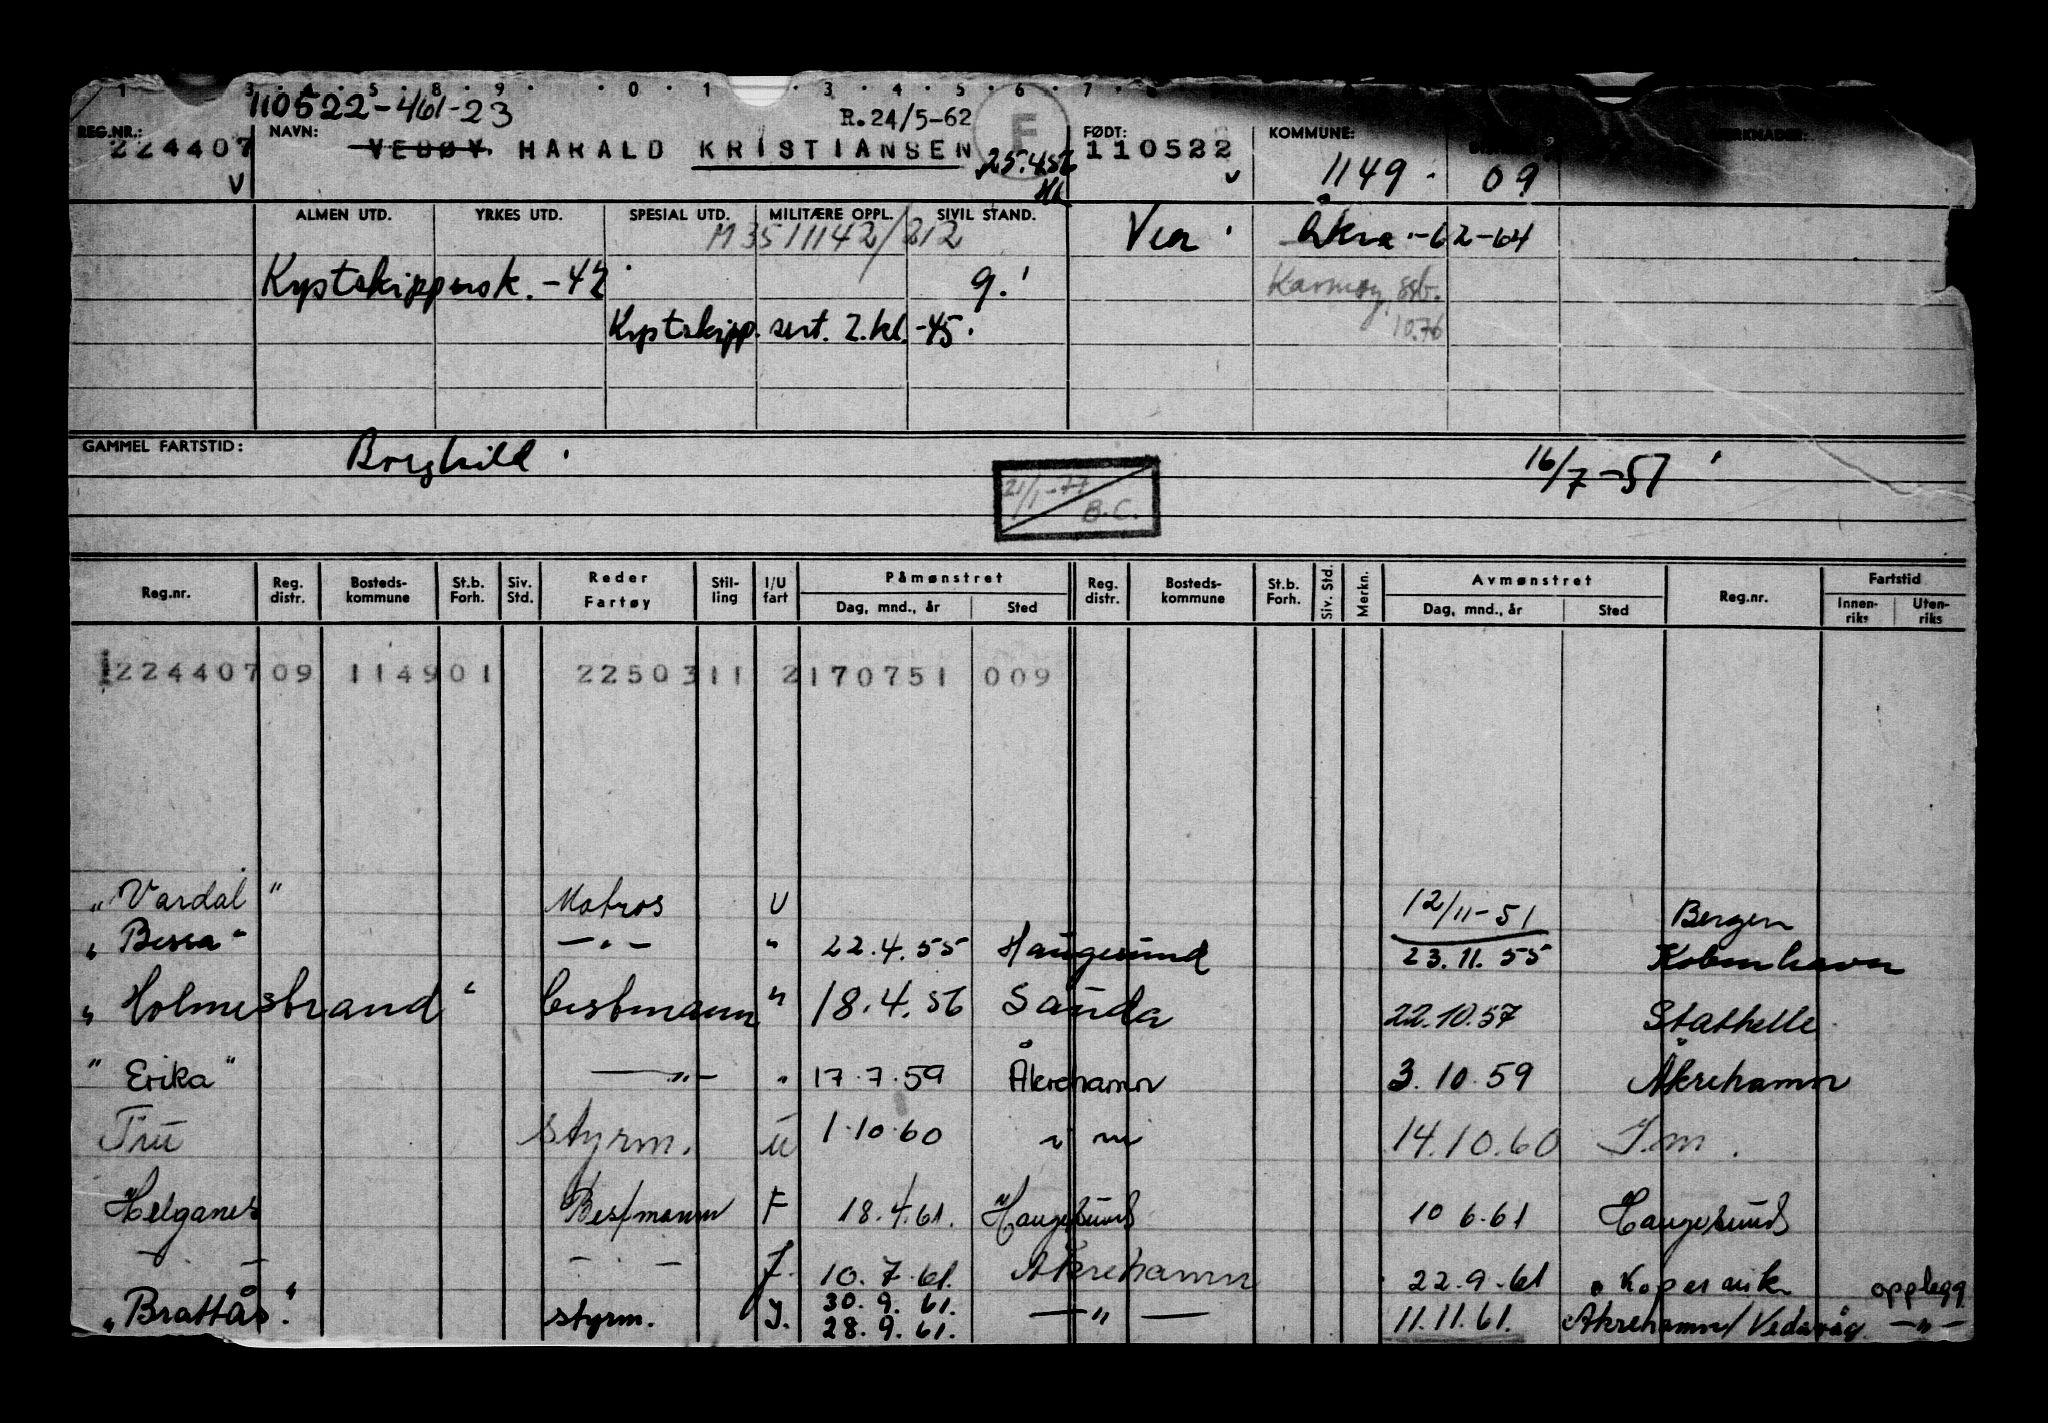 110522-461-23
R. 24/5-62
F
REG.NR.: NAVN: FØDT: KOMMUNE:
224407 VEDØY HARALD KRISTIANSEN 110522
25.4.56
V 1149 09
ALMEN UTD. YRKES UTD. SPESIAL UTD. MILITÆRE OPPL. SIVIL STAND.
M 3511142/212 Vea Åkra -62-64
Kystskippersk. -42 g. Karmøy, ssb.
Kystskipp. sert. 2.kl. -45. 10.76
GAMMEL FARTSTID: Borghild 16/7-51
21/1-77
B.C.
Reg.nr. Reg. distr. Bosteds-kommune St.b. Forh. Siv. Std. Reder Fartøy Stil-ling I/U fart Påmønstret Dag, mnd., år Sted Reg. distr. Bosteds-kommune St.b. Forh. Siv. Std. Merkn. Avmønstret Dag, mnd., år Sted Reg.nr. Fartstid Innen-riks Uten-riks
122440709 114901 2250311 2170751 009
"Vardal" Matros U 12/11-51 Bergen
"Bessa" — " — " 22.4.55 Haugesund 23.11.55 København
"Holmesbrand" bestmann " 18.4.56 Sauda 22.10.57 Stathelle
"Erika" — " — " 17.7.59 Åkrehamn 3.10.59 Åkrehamn
Tru styrm. U 1.10.60 14.10.60
Helganes Bestmann F 18.4.61. Haugesund 10 6.61 Haugesund
— — — — 10.7.61. Åkrehamn 22.9.61 Kopervik opplegg
"Brattås". styrm. 30.9.61. — " — 11.11.61. Åkrehamn/Vedavåg — " —
28.9.61.